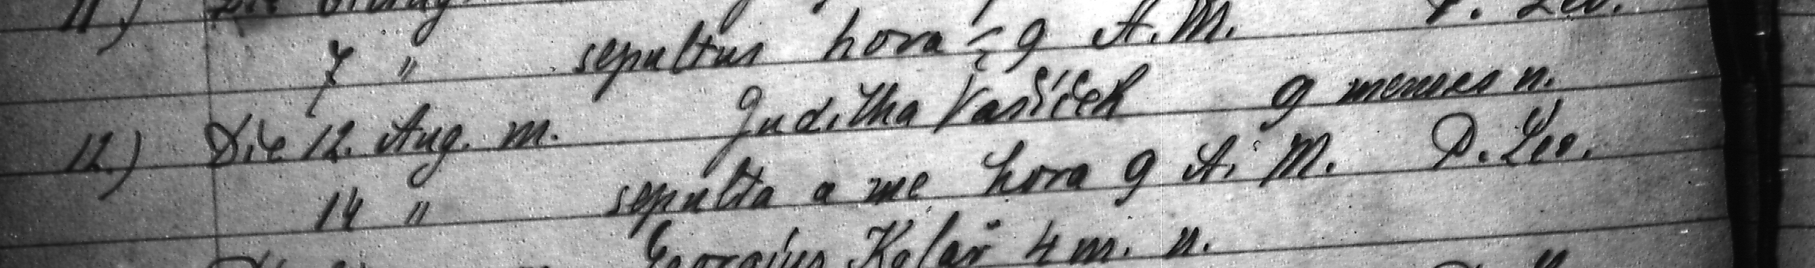 11)
7 " sepultus hora ½ 9 A.M. P. Leo.
12.) Die 12. Aug. m. Juditha Vašíček 9 menses n.
14 " sepulta a me hora 9 A. M. P. Leo.
Georgius Kolář 4 m. n.